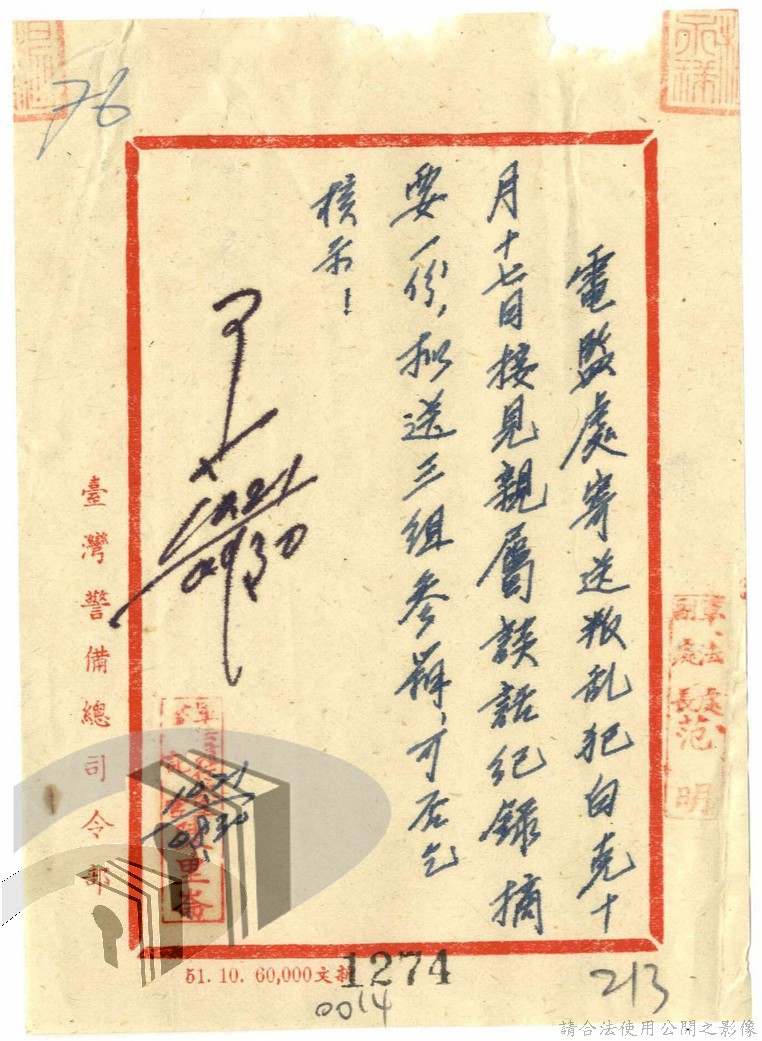 76
永祥
電監處寄送叛乱犯白克十
月十七日接見親屬談話紀錄摘
要一份,拟送三組參辦,可否乞
核示!
1021
0930
1021
0830
軍法處
副處長范明
臺灣警備總司令部
51. 10. 60,000文新
1274
0014
213
請合法使用公開之影像